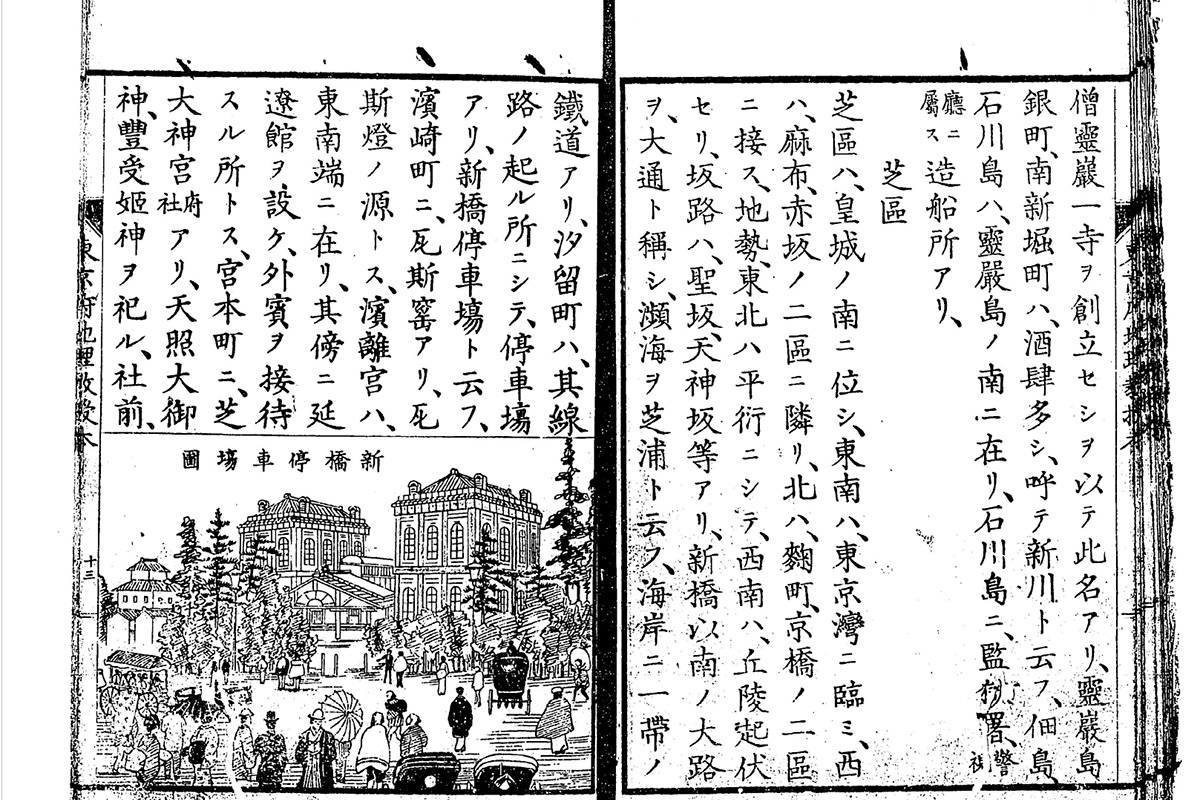 僧靈巖一寺ヲ創立セシヲ以テ此名アリ、靈巖島
銀町、南新堀町ハ、酒肆多シ、呼テ新川ト云フ、佃島、
石川島ハ、靈嚴島ノ南ニ在リ、石川島ニ、監獄署、警視
廳ニ屬ス造船所アリ、
芝區
芝區ハ、皇城ノ南ニ位シ、東南ハ、東京灣ニ臨ミ、西
ハ、麻布、赤坂ノ二區ニ隣リ、北ハ、麴町、京橋ノ二區
ニ接ス、地勢、東北ハ平衍ニシテ、西南ハ、丘陵起伏
セリ、坂路ハ、聖坂、天神坂等アリ、新橋以南ノ大路
ヲ、大通ト稱シ、瀕海ヲ芝浦ト云フ、海岸ニ一帶ノ
鐵道アリ、汐留町ハ、其線
路ノ起ル所ニシテ、停車塲
アリ、新橋停車塲ト云フ、
濱崎町ニ、瓦斯窰アリ、瓦
斯燈ノ源トス、濱離宮ハ、
東南端ニ在リ、其傍ニ延
遼館ヲ設ケ、外賓ヲ接待
スル所トス、宮本町ニ、芝
大神宮府社アリ、天照大御
神、豐受姬神ヲ祀ル、社前、
新橋停車塲圖
東京府地理敎授本
十三